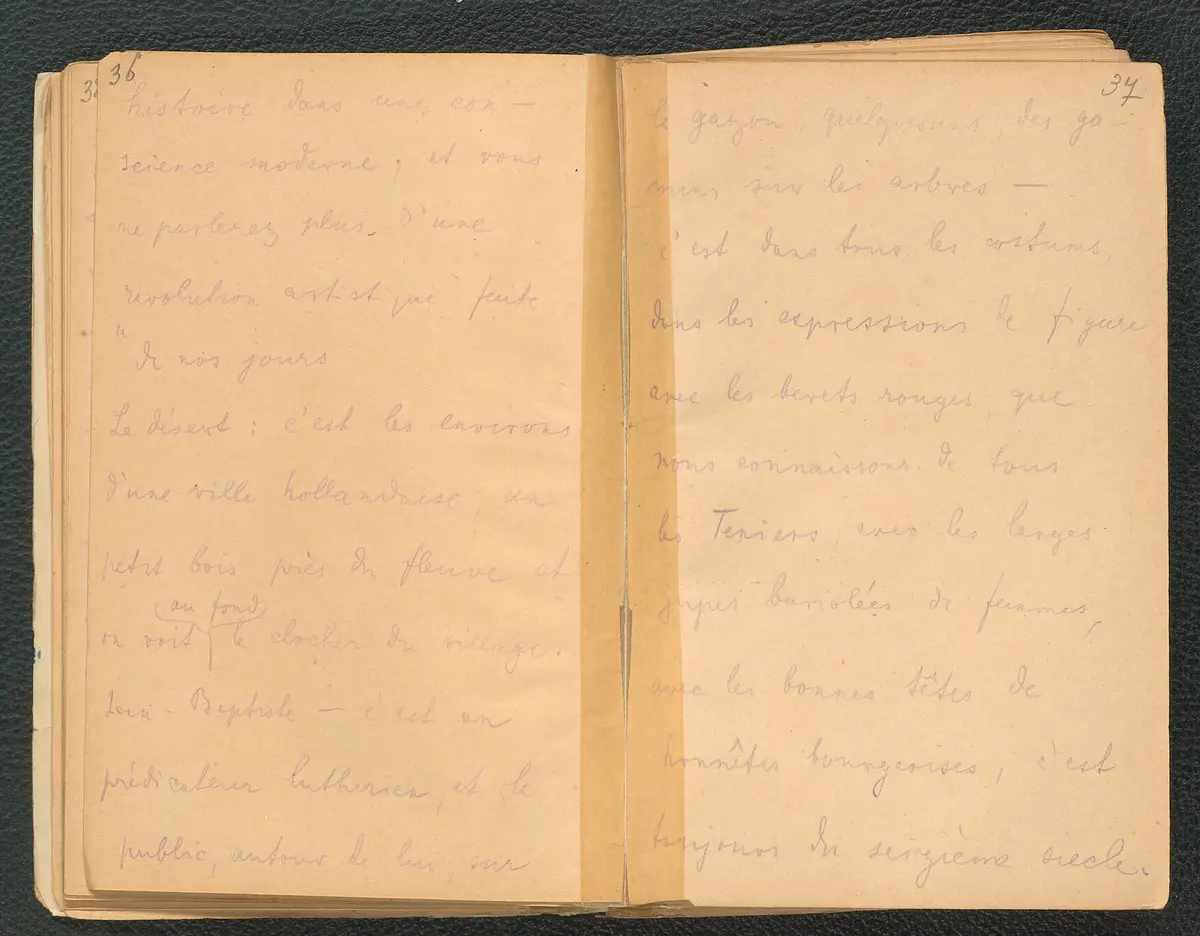 36
histoire dans une con —
science moderne ; et vous
ne parlerez plus d'une
revolution artistique faite
" de nos jours
Le désert : c'est les environs
d'une ville hollandaise, un
petit bois près du fleuve et
au fond
on voit le clocher du village.
Jean - Baptiste — c'est un
prédicateur lutherien, et le
public, autour de lui, sur
37
le gazon, quelquesuns, des ga —
mins sur les arbres —
c'est dans tous les costums,
dans les expressions de figure
avec les berets rouges que
nous connaissons de tous
les Teniers, avec les larges
jupes bariolées de femmes,
avec les bonnes têtes de
honnêtes bourgeoises, c'est
toujours du seizième siecle.